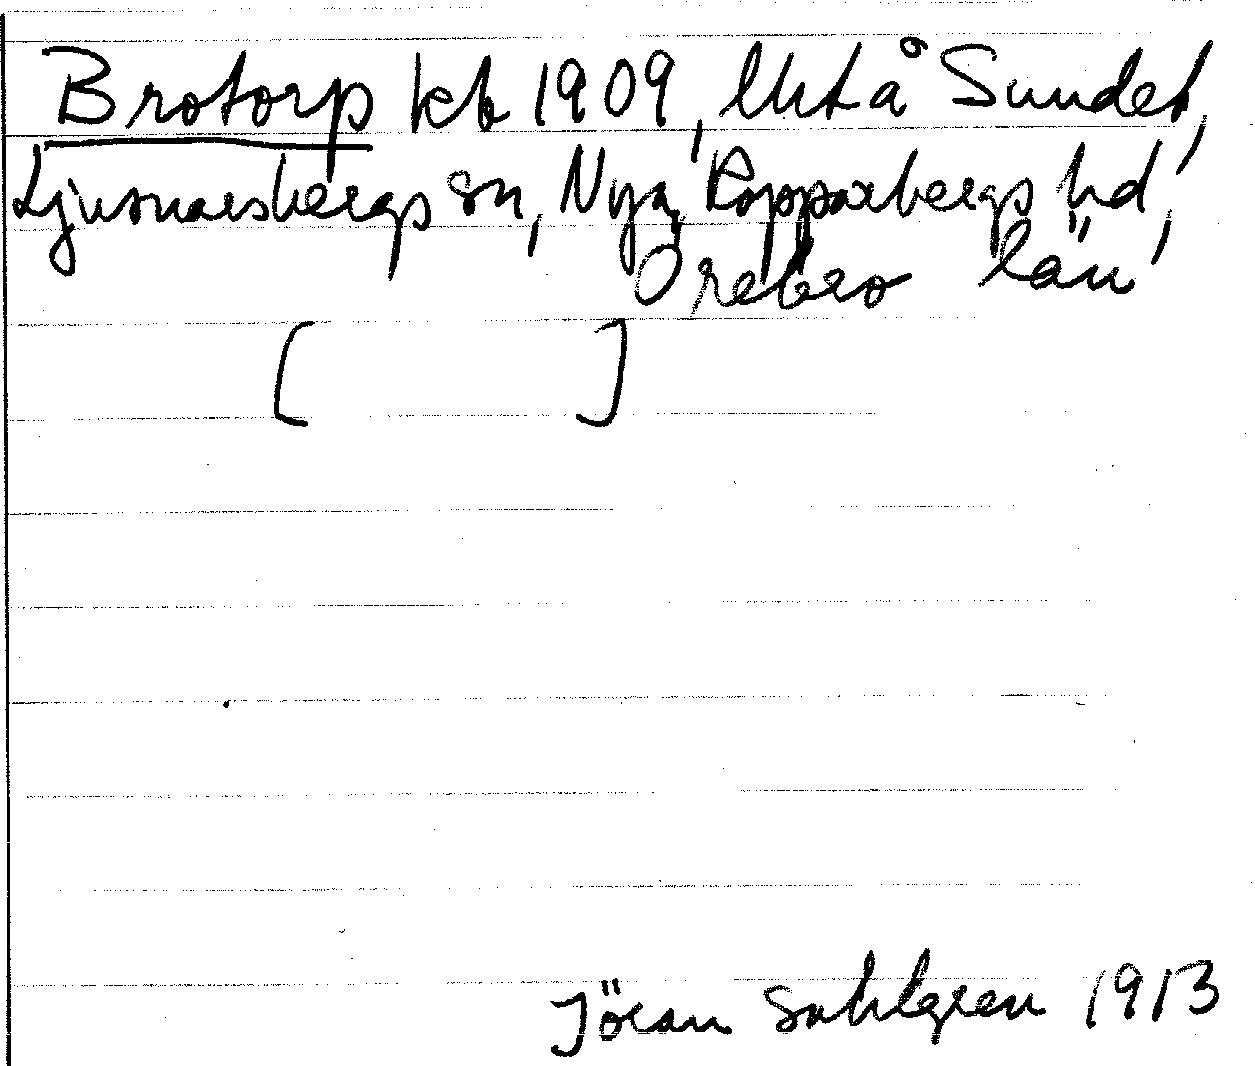 Brotorp kb 1909, litet å Sundet,
Ljusnarsbergs sn, Nya Kopparbergs hd,
Örebro län
[ ]
Jöran Sahlgren 1913